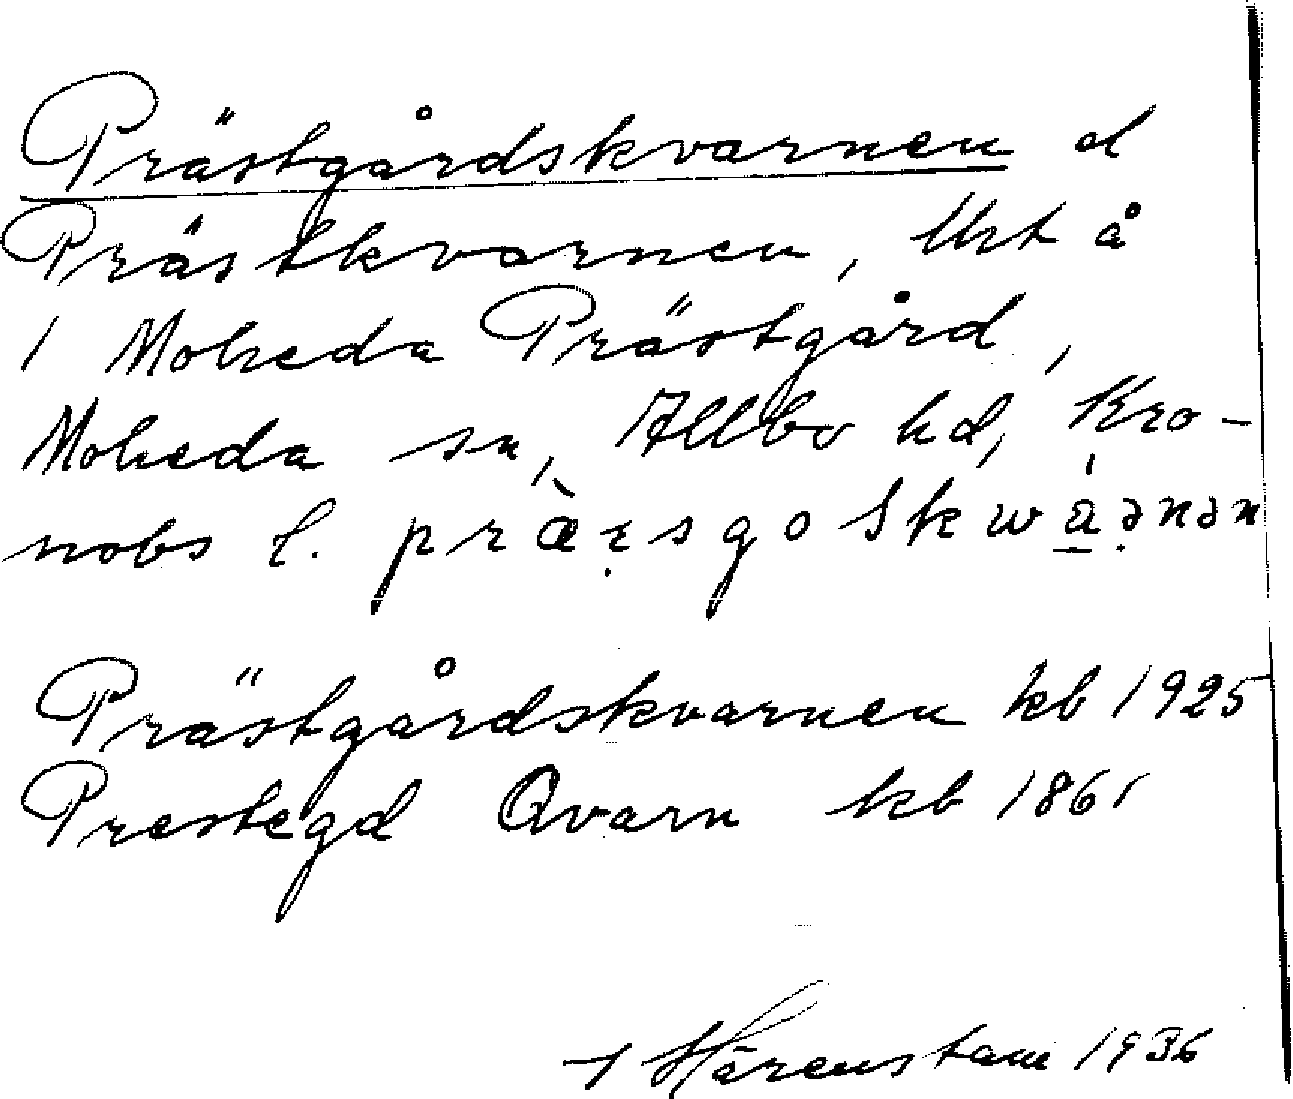 Prästgårdskvarnen el
Prästkvarnen, lht å
1 Moheda Prästgård,
Moheda sn, Allbo hd, Kro-
nobs l.
Prästgårdskvarnen kb 1925
Prestegd Qvarn kb 1861
Härenstam 1936